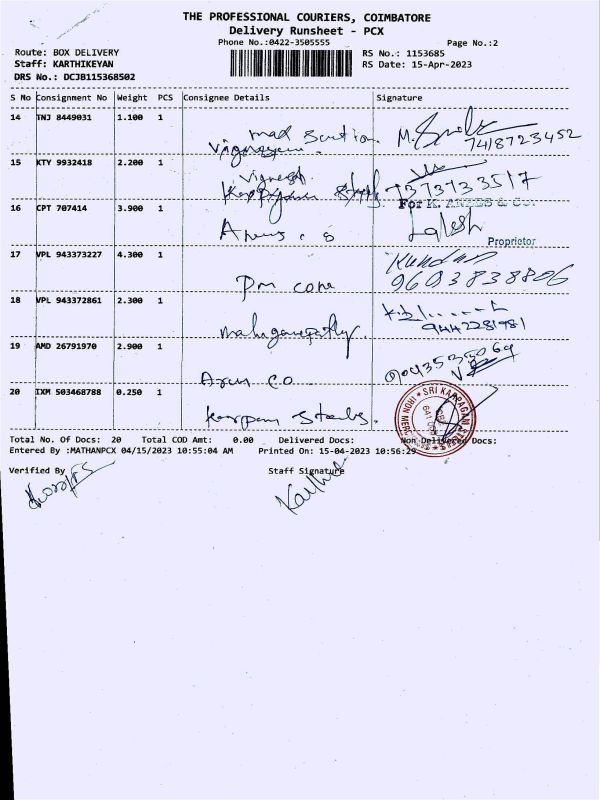 THE PROFESSIONAL COURIERS, COIMBATORE
Delivery Runsheet - PCX
Phone No.:0422-3505555
Page No.:2
Route: BOX DELIVERY
RS No.: 1153685
Staff: KARTHIKEYAN
RS Date: 15-Apr-2023
DRS No.: DCJB115368502
S No Consignment No Weight PCS Consignee Details Signature
14 TNJ 8449031 1.100 1
mad
M.
7418723452
15 KTY 9932418 2.200 1
Vignesh
7373733517
16 CPT 707414 3.900 1
For K.
Lalesh
Proprietor
17 VPL 943373227 4.300 1
Kundan
Pm cone
9603838806
18 VPL 942372861 2.300 1
mahaganapathy
9442281981
19 AMD 26791970 2.900 1
Arun Co
20 IXM 503468788 0.250 1
SRI KARPAGAM
IRON MERC
Total No. Of Docs: 20 Total COD Amt: 0.00 Delivered Docs: Non Delivered Docs:
Entered By :MATHANPCX 04/15/2023 10:55:04 AM Printed On: 15-04-2023 10:56:29
Verified By Staff Signature